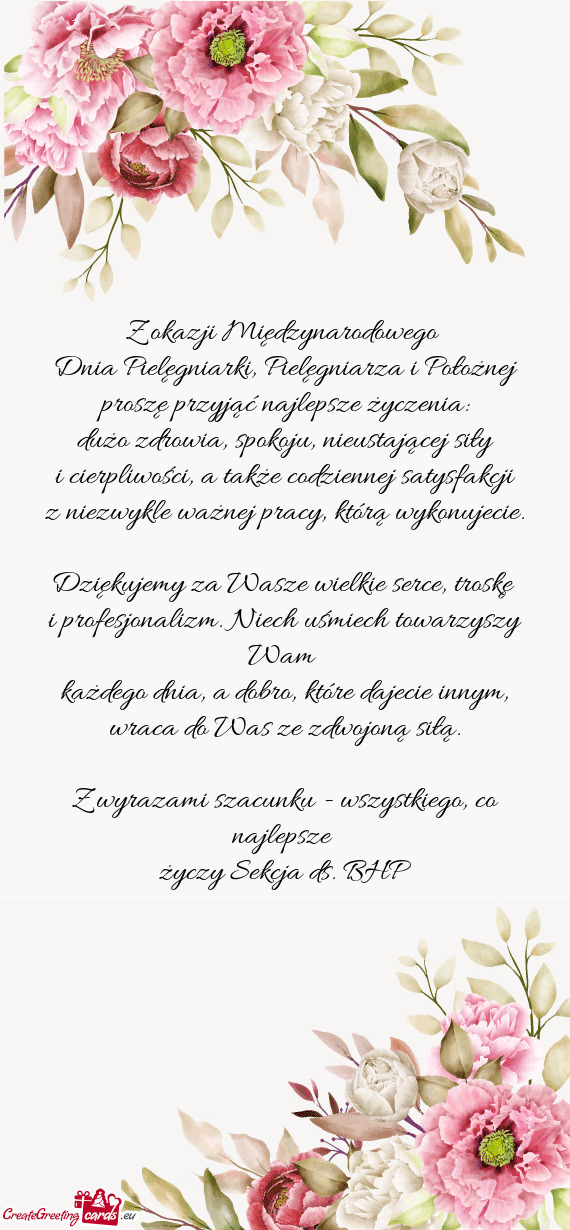 Z okazji Międzynarodowego
Dnia Pielęgniarki, Pielęgniarza i Położnej
proszę przyjąć najlepsze życzenia:
dużo zdrowia, spokoju, nieustającej siły
i cierpliwości, a także codziennej satysfakcji
z niezwykle ważnej pracy, którą wykonujecie.
Dziękujemy za Wasze wielkie serce, troskę
i profesjonalizm. Niech uśmiech towarzyszy
Wam
każdego dnia, a dobro, które dajecie innym,
wraca do Was ze zdwojoną siłą.
Z wyrazami szacunku - wszystkiego, co
najlepsze
życzy Sekcja ds. BHP
CreateGreeting cards .eu